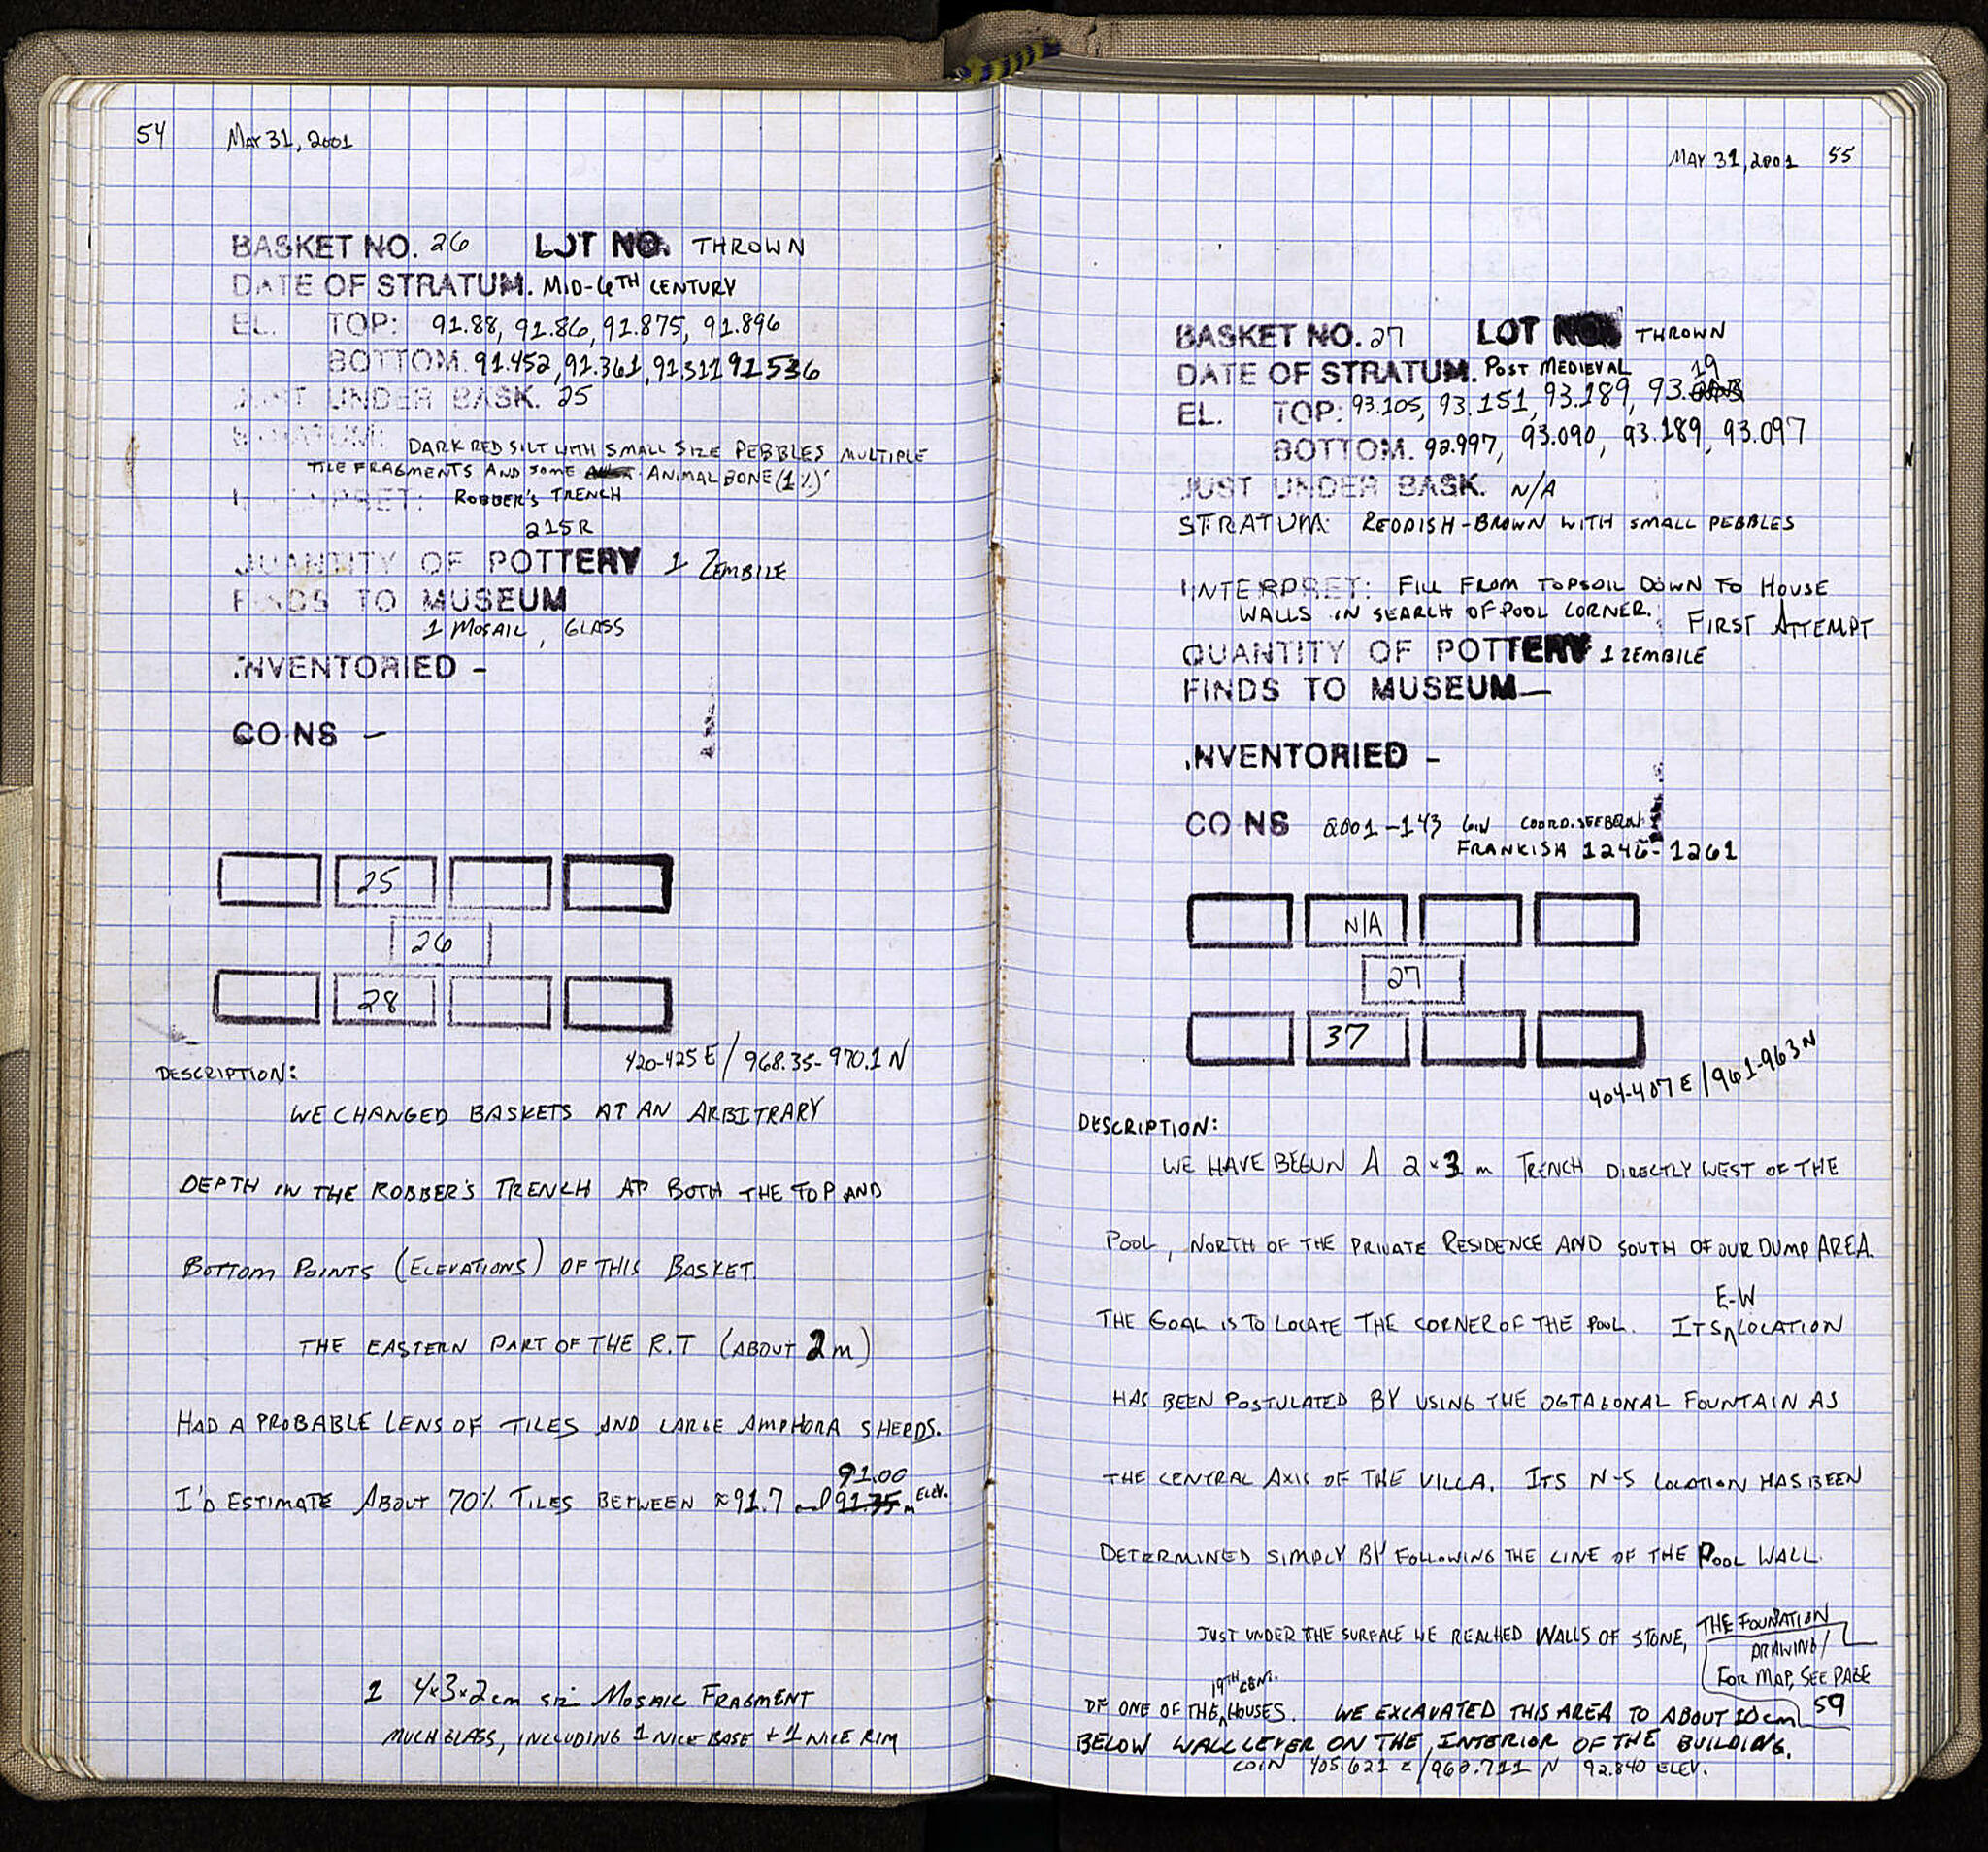 54 MAY 31, 2001
BASKET NO. 26 LOT NO. THROWN
DATE OF STRATUM. MID-6TH CENTURY
EL. TOP: 91.88, 91.86, 91.875, 91.896
BOTTOM. 91.452, 91.361, 91.311 91.536
JUST UNDER BASK. 25
STRATUM: DARK RED SILT WITH SMALL SIZE PEBBLES MULTIPLE
TILE FRAGMENTS AND SOME ANIMAL BONE (1%)
INTERPRET: ROBBER'S TRENCH
215R
QUANTITY OF POTTERY 1 ZEMBILE
FINDS TO MUSEUM
1 MOSAIC, GLASS
INVENTORIED -
COINS -
25
26
28
420-425 E / 968.35-970.1 N
DESCRIPTION:
WE CHANGED BASKETS AT AN ARBITRARY
DEPTH IN THE ROBBER'S TRENCH AT BOTH THE TOP AND
BOTTOM POINTS (ELEVATIONS) OF THIS BASKET.
THE EASTERN PART OF THE R.T (ABOUT 2m)
HAD A PROBABLE LENS OF TILES AND LARGE AMPHORA SHERDS.
91.00
I'D ESTIMATE ABOUT 70% TILES BETWEEN ≈91.7 and 91.35 m ELEV.
1 4×3×2cm siz MOSAIC FRAGMENT
MUCH GLASS, INCLUDING 1 NICE BASE + 1 NICE RIM
MAY 31, 2001 55
BASKET NO. 27 LOT NO. THROWN
DATE OF STRATUM. POST MEDIEVAL
EL. TOP: 93.105, 93.151, 93.189, 93.19
BOTTOM. 92.997, 93.090, 93.189, 93.097
JUST UNDER BASK. N/A
STRATUM: REDDISH-BROWN WITH SMALL PEBBLES
INTERPRET: FILL FROM TOPSOIL DOWN TO HOUSE
WALLS IN SEARCH OF POOL CORNER. FIRST ATTEMPT
QUANTITY OF POTTERY 1 ZEMBILE
FINDS TO MUSEUM —
INVENTORIED -
COINS 2001-143 COORD. SEE BELOW
FRANKISH 1246-1261
N/A
27
37
404-407 E / 961-963 N
DESCRIPTION:
WE HAVE BEGUN A 2×3 m TRENCH DIRECTLY WEST OF THE
POOL, NORTH OF THE PRIVATE RESIDENCE AND SOUTH OF OUR DUMP AREA.
E-W
THE GOAL IS TO LOCATE THE CORNER OF THE POOL. ITS LOCATION
HAS BEEN POSTULATED BY USING THE OCTAGONAL FOUNTAIN AS
THE CENTRAL AXIS OF THE VILLA. ITS N-S LOCATION HAS BEEN
DETERMINED SIMPLY BY FOLLOWING THE LINE OF THE POOL WALL.
JUST UNDER THE SURFACE WE REACHED WALLS OF STONE, THE FOUNDATION
DRAWING/
FOR MAP, SEE PAGE
59
19TH CENT.
OF ONE OF THE HOUSES. WE EXCAVATED THIS AREA TO ABOUT 10cm
BELOW WALL LEVER ON THE INTERIOR OF THE BUILDING.
COIN 405.621 E / 960.711 N 92.840 ELEV.